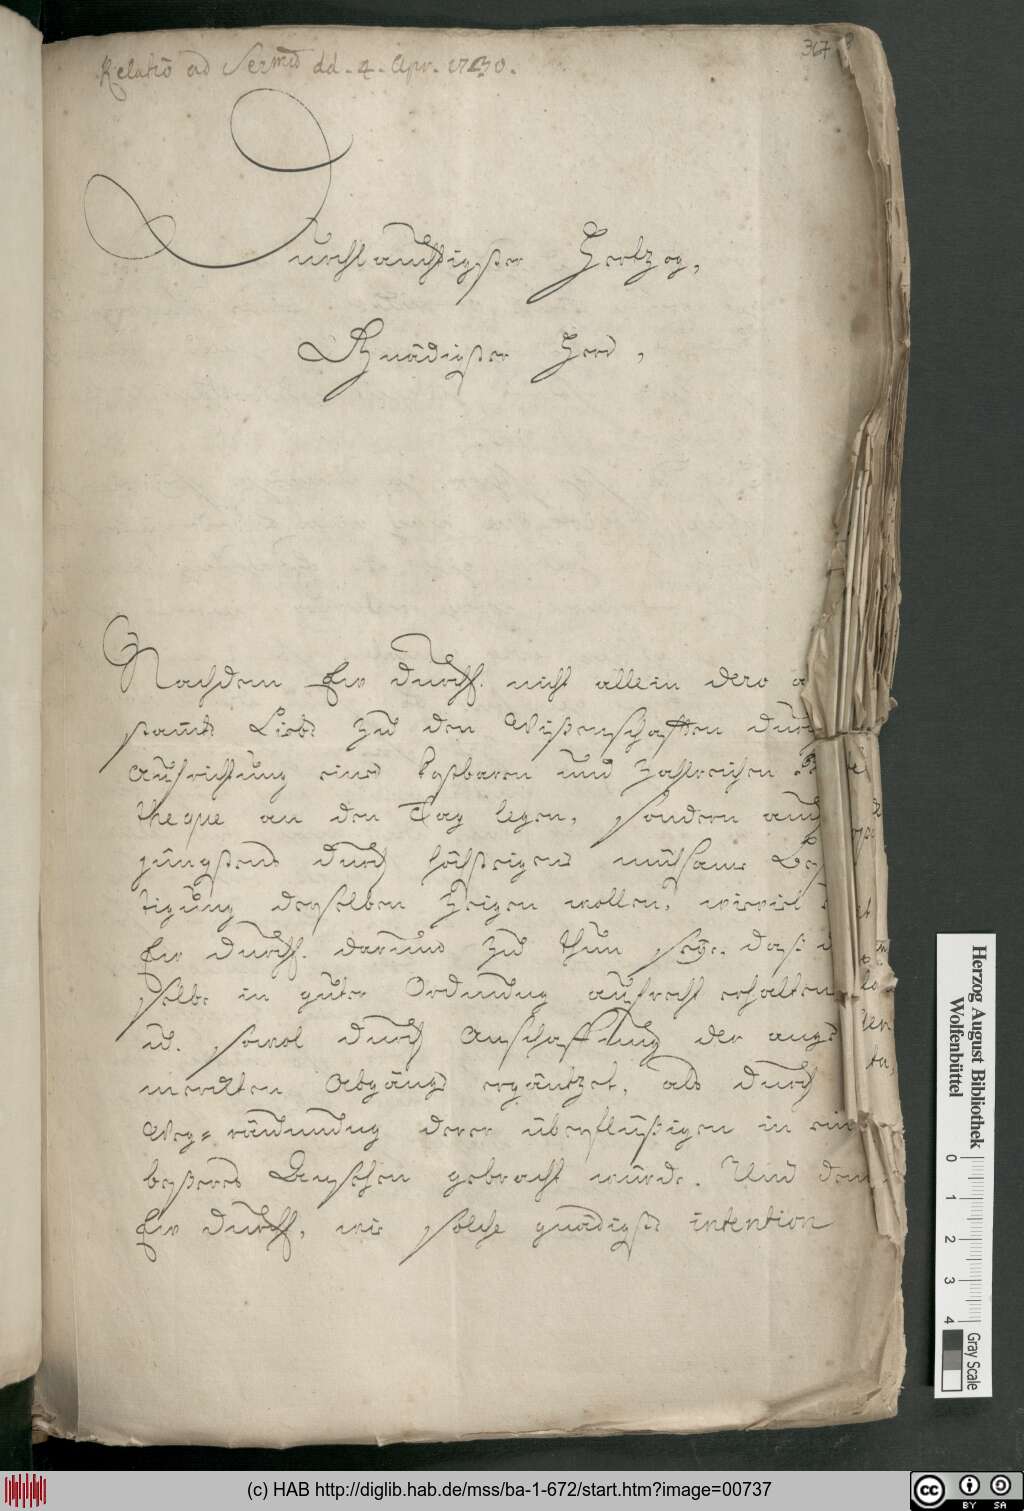 Relatio ad Sermũ dd. 4. Apr. 1730.
367
Durchlauchtigster Hertzog,
Gnädigster Herr,
Nachdem Ew Durchl. nicht allein dero
Liebe zu den Wißenschafften durch
Aufrichtung einer kostbaren und zahlreichen
theque an den Tag legen, sondern auch
jüngstens durch höchsteigene mühsame
tigung derselben zeigen wollen, wieviel
Ew Durchl. darum zu thun seye, daß
selbe in guter Ordnung aufrecht erhalten
u. sowol durch Anschaffung der ange
merckten Abgänge ergäntzet, als durch
Weg=räumung derer überflüßigen in ein
beßeres Ansehen gebracht würde. Und dem
Ew Durchl. wie solche gnädigste intention
Herzog August Bibliothek
Wolfenbüttel
0 1 2 3 4
Gray Scale
(c) HAB http://diglib.hab.de/mss/ba-1-672/start.htm?image=00737
cc BY SA